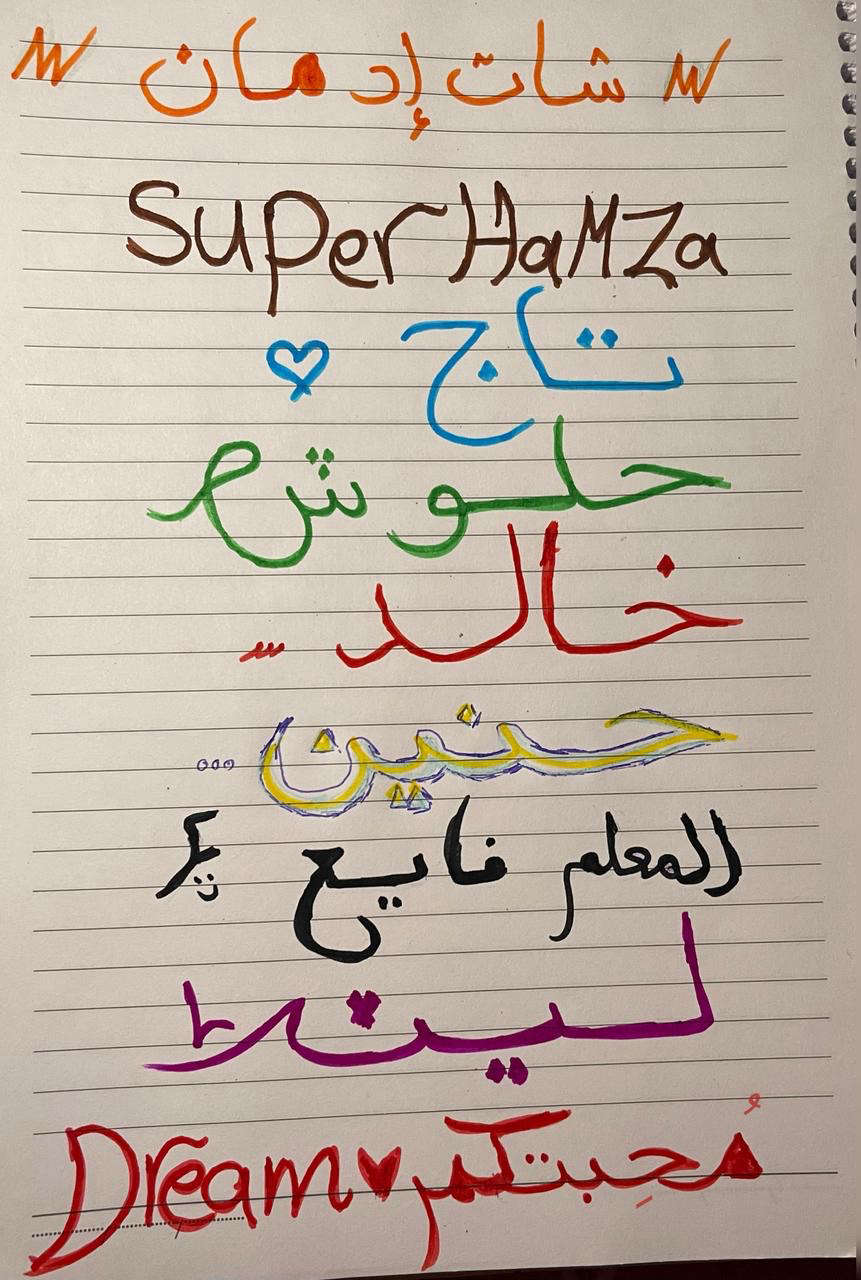 شات إدمان
Super HaMZa
تاج
حلوش
خالد
حنين
المعلم فايع
ليتلا
مُحِبتكم Dream